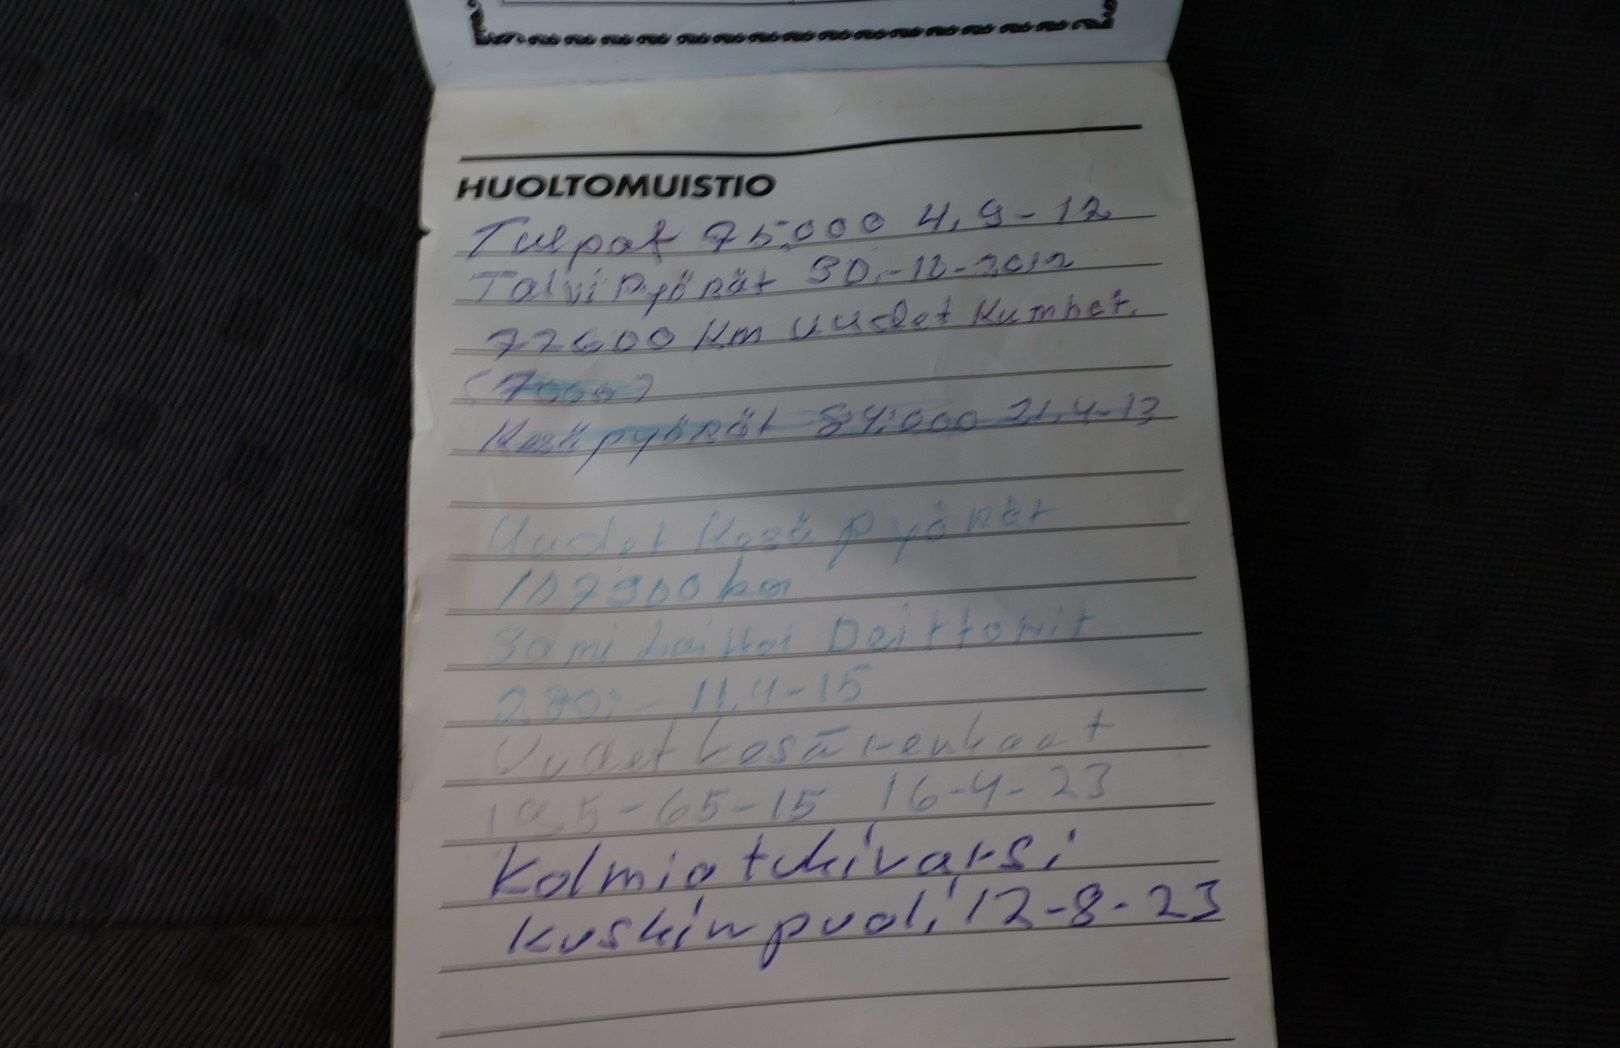 HUOLTOMUISTIO
Tulpat 75.000 4,9-12
Talvipyörät 30.-12-2012
77600 Km Uudet Kumhet.
(7000)
Kesäpyörät 84.000 21.4-13
Uudet Kesäpyörät
107900 km
Sami Laittoi
280:- 11.4-15
Uudet kesärenkaat
195-65-15 16-4-23
Kolmiotukivarsi
kuskinpuoli 12-8-23